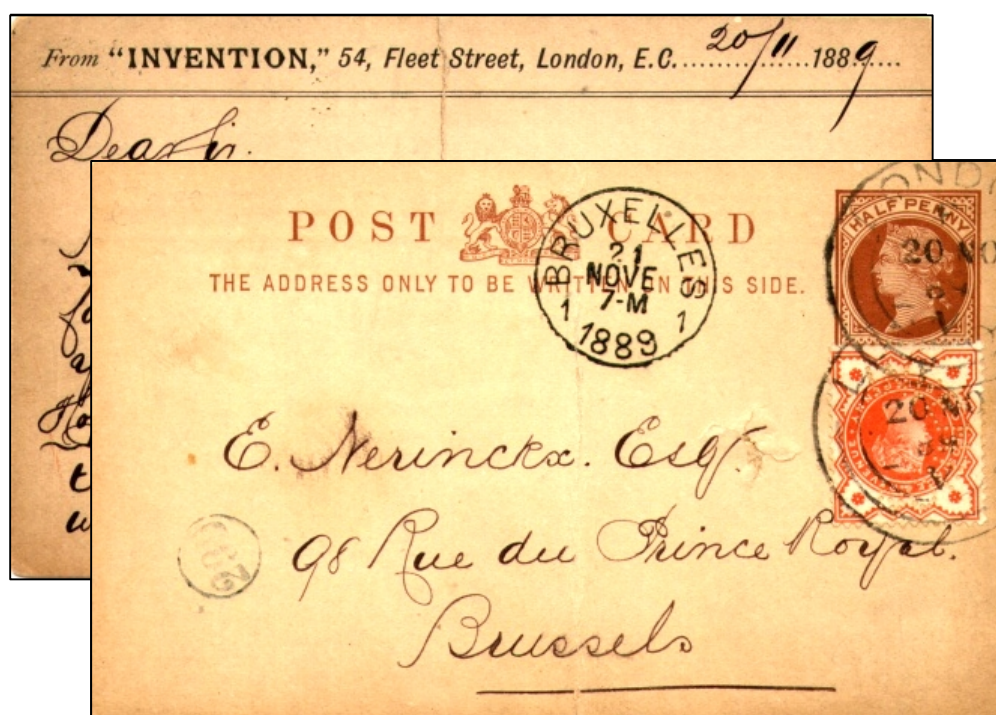 From "INVENTION," 54, Fleet Street, London, E.C. 20/11 1889
Dear Sir.
POST CARD
THE ADDRESS ONLY TO BE WRITTEN ON THIS SIDE.
BRUXELLES
21
NOVE
7-M
1 1
1889
LONDO
HALF PENNY
20 NO
20 N
E. Nerinckx. Esq.
98 Rue du Prince Royal.
Brussels